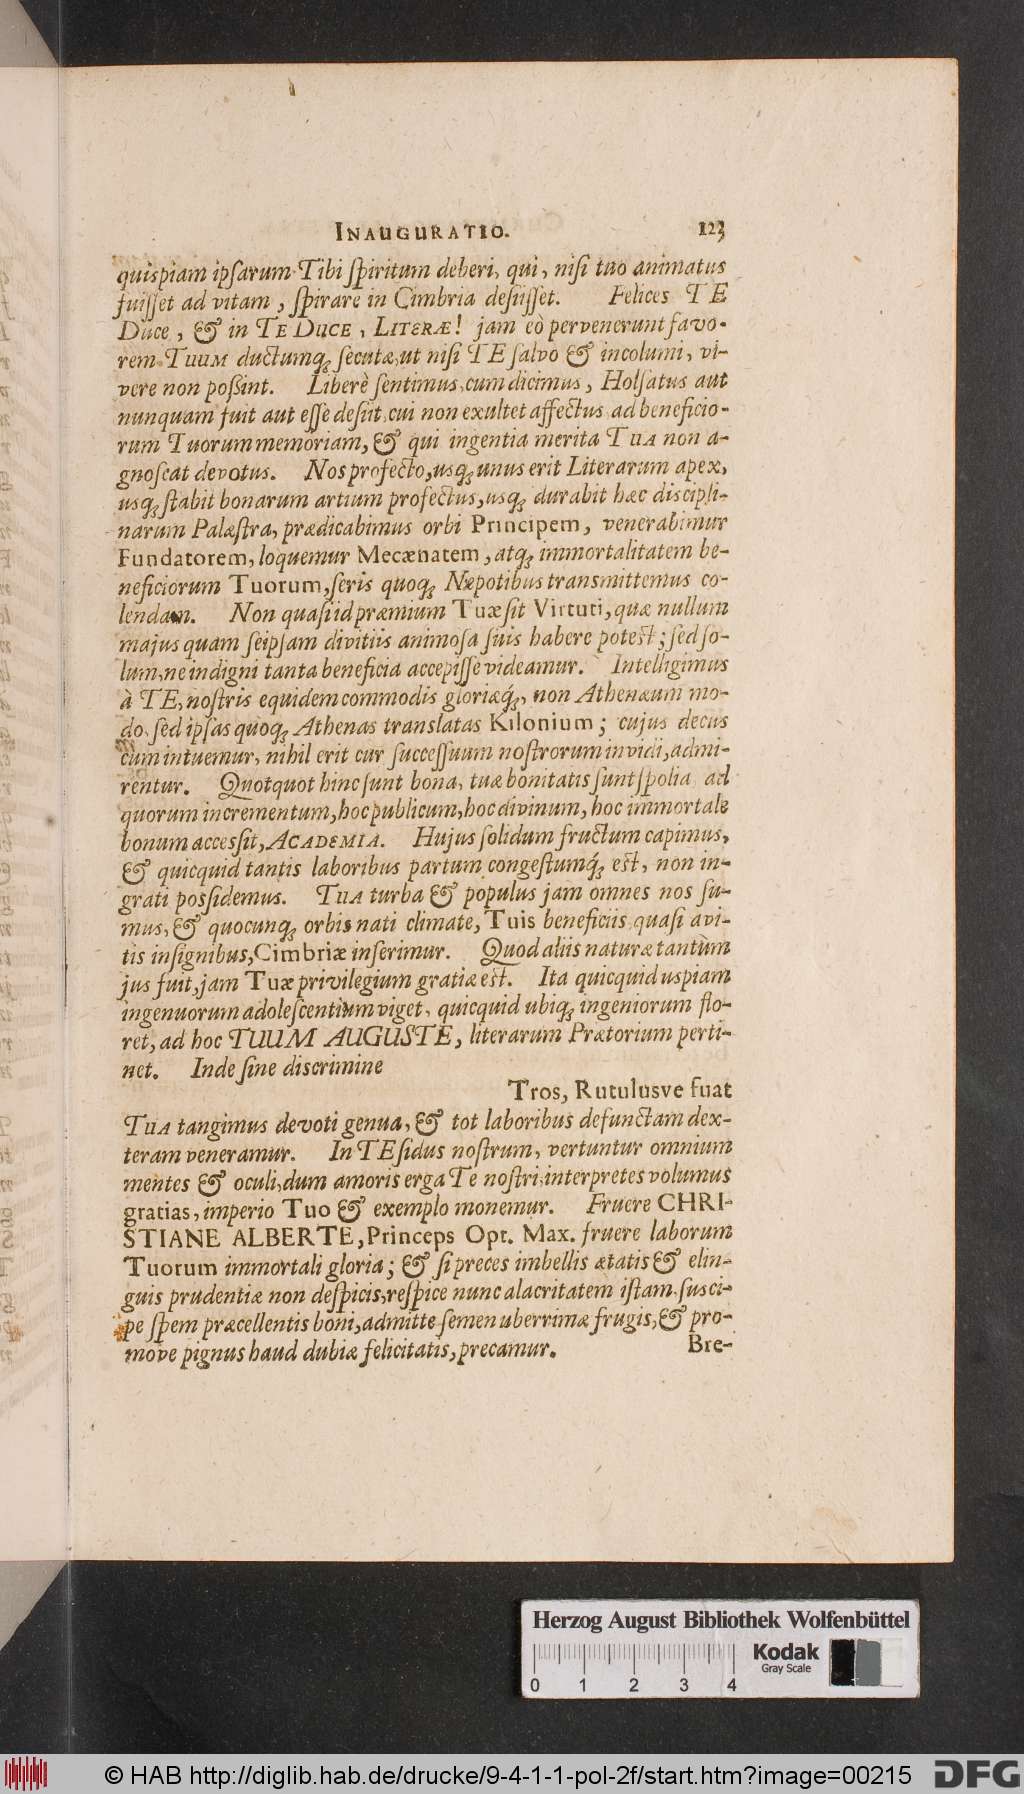 INAUGURATIO. 123
quispiam ipsarum Tibi spiritum deberi, qui, nisi tuo animatus
fuisset ad vitam, spirare in Cimbria desiisset. Felices TE
Duce, & in TE DUCE, LITERÆ! jam eò pervenerunt favo-
rem TUUM ductumq; secutæ, ut nisi TE salvo & incolumi, vi-
vere non possint. Liberè sentimus, cum dicimus, Holsatus aut
nunquam fuit aut esse desiit, cui non exultet affectus ad beneficio-
rum Tuorum memoriam, & qui ingentia merita TUA non a-
gnoscat devotus. Nos profectò, usq; unus erit Literarum apex,
usq; stabit bonarum artium profectus, usq; durabit hæc discipli-
narum Palæstra, prædicabimus orbi Principem, venerabimur
Fundatorem, loquemur Mecænatem, atq; immortalitatem be-
neficiorum Tuorum, seris quoq; Næpotibus transmittemus co-
lendam. Non quasi id præmium Tuæ sit Virtuti, quæ nullum
majus quam seipsam divitiis animosa suis habere potest; sed so-
lum, ne indigni tanta beneficia accepisse videamur. Intelligimus
à TE, nostris equidem commodis gloriæq́;, non Athenæum mo-
do, sed ipsas quoq; Athenas translatas Kilonium; cujus decus
cum intuemur, nihil erit cur successuum nostrorum invidi, admi-
rentur. Quotquot hinc sunt bona, tuæ bonitatis sunt spolia ad
quorum incrementum, hoc publicum, hoc divinum, hoc immortale
bonum accessit, ACADEMIA. Hujus solidum fructum capimus,
& quicquid tantis laboribus partum congestumq́; est, non in-
grati possidemus. TUA turba & populus jam omnes nos su-
mus, & quocunq; orbis nati climate, Tuis beneficiis, quasi avi-
tis insignibus, Cimbriæ inserimur. Quod aliis naturæ tantùm
jus fuit, jam Tuæ privilegium gratiæ est. Ita quicquid uspiam
ingenuorum adolescentium viget, quicquid ubiq; ingeniorum flo-
ret, ad hoc TUUM AUGUSTE, literarum Prætorium perti-
net. Inde sine discrimine
Tros, Rutulusve fuat
TUA tangimus devoti genua, & tot laboribus defunctam dex-
teram veneramur. In TE sidus nostrum, vertuntur omnium
mentes & oculi, dum amoris erga Te nostri, interpretes volumus
gratias, imperio Tuo & exemplo monemur. Fruere CHRI-
STIANE ALBERTE, Princeps Opt. Max. fruere laborum
Tuorum immortali gloria; & si preces imbellis ætatis & elin-
guis prudentiæ non despicis, respice nunc alacritatem istam, susci-
pe spem præcellentis boni, admitte semen uberrimæ frugis, & pro-
move pignus haud dubiæ felicitatis, precamur. Bre-
Herzog August Bibliothek Wolfenbüttel
Kodak
Gray Scale
0 1 2 3 4
© HAB http://diglib.hab.de/drucke/9-4-1-1-pol-2f/start.htm?image=00215 DFG